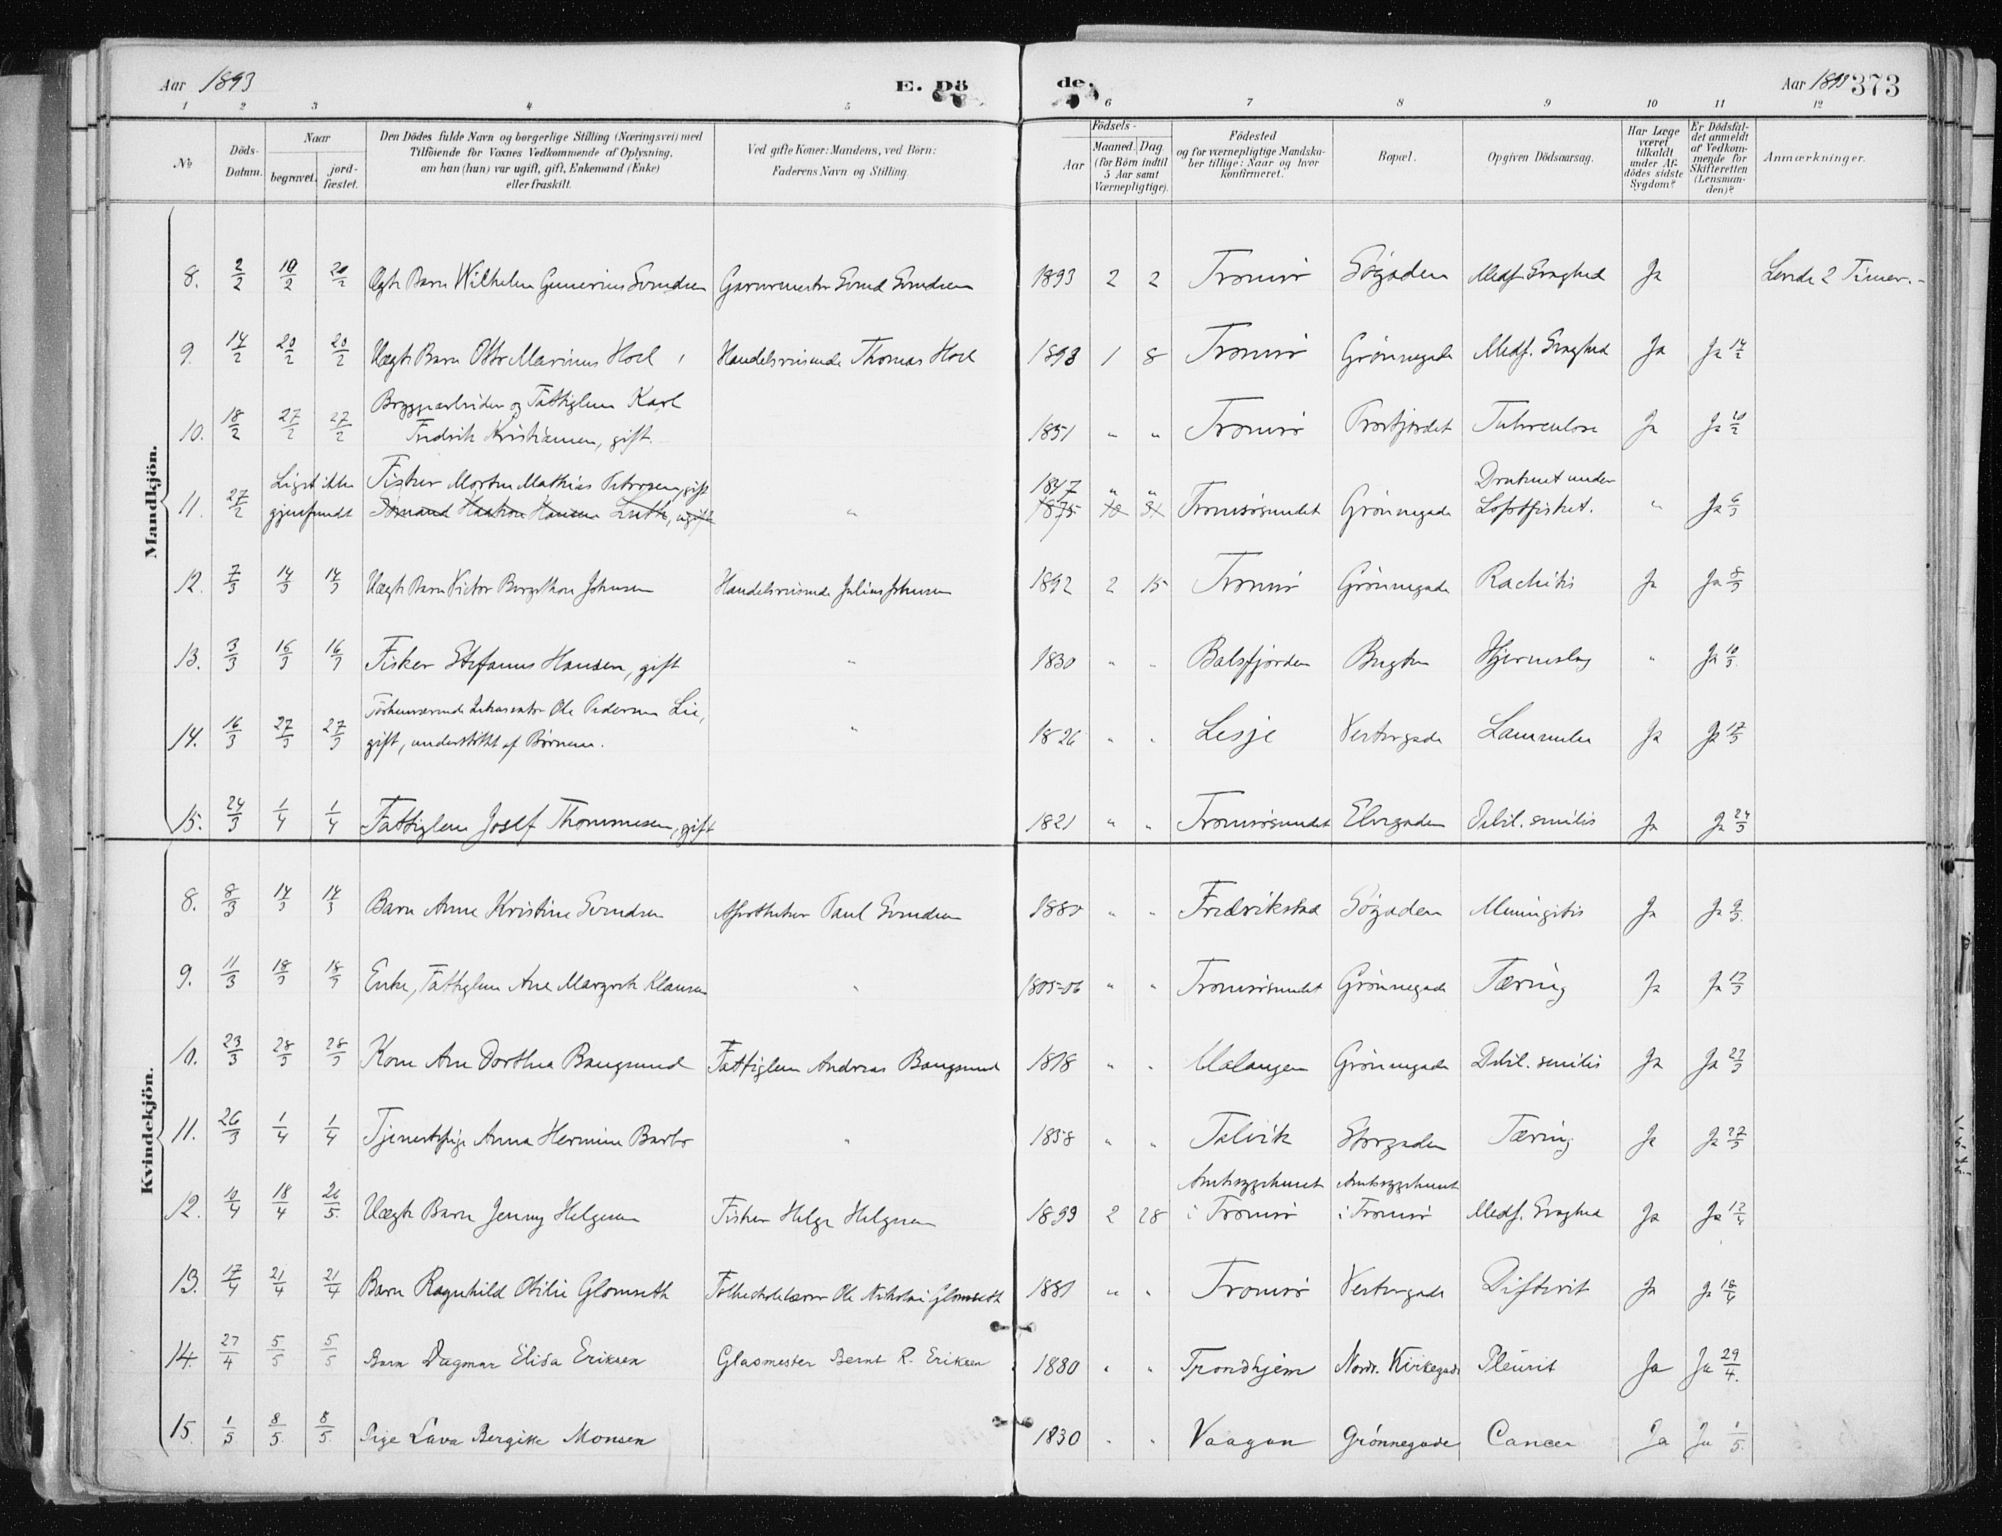 Aar 1893
E. Dö
de.
Aar 1893
373
1 2 3 4 5 6 7 8 9 10 11 12
No
Döds-Datum.
Naar
begravet.
jord-fæstet.
Den Dödes fulde Navn og borgerlige Stilling (Næringsvei) med
Tilföiende for Voxnes Vedkommende af Oplysning,
om han (hun) var ugift, gift, Enkemand (Enke)
eller fraskilt.
Ved gifte Koner: Mandens, ved Börn:
Faderens Navn og Stilling.
Födsels-
Aar
Maaned. Dag
(for Börn indtil
5 Aar samt
Værnepligtige).
Födested
og for værnepligtige Mandska-
ber tillige: Naar og hvor
konfirmeret.
Bopæl.
Opgiven Dödsaarsag.
Har Læge
været
tilkaldt
under Af-
dödes sidste
Sygdom?
Er Dödsfal-
det anmeldt
af Vedkom-
mende for
Skifteretten
(Lensman-
den)?
Anmærkninger.
Mandkjön.
8. 2/2 19/2 20/2 Ægte Barn Wilhelm Gunerius Svendsen Garvermester Svend Svendsen 1893 2 2 Tromsø Søgaden Medf. Svaghed Ja Levde 2 Timer.-
9. 14/2 20/2 20/2 Uægte Barn Otto Marinus Hoel Handelsreisende Thomas Hoel 1893 1 8 Tromsø Grönnegade Medf. Svaghed Ja Ja 14/2
10. 18/2 27/2 27/2 Bryggearbeider og Fattiglem Karl
Fredrik Kristiansen, gift. 1851 " " Tromsø Prestfjordet Tuberculose Ja Ja 20/2
11. 27/2 Liget ikke
gjenfundt
Fisker Morten Mathias Petersen, gift
Sømand Haakon Hansen Luth, ugift
" 1847 " "
1875
Tromsøsundet Grönnegade Druknet under
Lofotfisket. " Ja 6/3
12. 7/3 14/3 14/3 Uægte Barn Victor Bergithon Johnsen Handelsreisende Julius Johnsen 1892 2 15 Tromsø Grönnegade Rachitis Ja Ja 8/3
13. 3/3 16/3 16/3 Fisker Stefanus Hansen, gift " 1830 " " Balsfjorden Bugten Hjerneslag " Ja 10/3
14. 16/3 27/3 27/3 Forhenværende Ole Pedersen Lie,
gift, understöttet af Börnene. " 1826 " " Lesje Vestergade Lammelse Ja Ja 17/3
15. 24/3 1/4 1/4 Fattiglem Josef Thommesen, gift 1821 " " Tromsøsundet Elvegaden Debil. senilis Ja Ja 24/3
Kvindekjön.
8. 8/3 14/3 14/3 Barn Anne Kristine Svendsen Apotheker Paul Svendsen 1880 " " Fredrikstad Søgaden Meningitis Ja Ja 9/3
9. 11/3 18/3 18/3 Enke, Fattiglem Ane Margrete Klausen " 1805-06 " " Tromsøsundet Grönnegade Tæring Ja Ja 13/3
10. 23/3 28/3 28/3 Kone Ane Dorthea Bangsund Fattiglem Andreas Bangsund 1818 " " Malangen Grönnegade Debil. senilis Ja Ja 27/3
11. 26/3 1/4 1/4 Tjenestepige Anna Hermine Barbo " 1858 " " Talvik Storgaden Tæring Ja Ja 27/3
12. 10/4 18/4 20/5. Uægte Barn Jenny Helgesen Fisker Helge Helgesen 1893 2 28 Amtssygehuset
i Tromsø Amtssygehuset
i Tromsø Medf. Svaghed Ja Ja 12/4
13. 17/4 21/4 21/4 Barn Ragnhild Otilie Glomseth Folkeskolelærer Ole Nikolai Glomseth 1881 " " Tromsø Vestergade Difterit Ja Ja 18/4
14. 27/4 5/5 5/5 Barn Dagmar Elisa Eriksen Glasmester Bernt R. Eriksen 1880 " " Trondhjem Nordr. Kirkegade Pleurit Ja Ja 29/4.
15. 1/5 8/5. 8/5. Pige Lava Bergitte Monsen 1830 " " Vaagan Grönnegade Cancer Ja Ja 1/5.